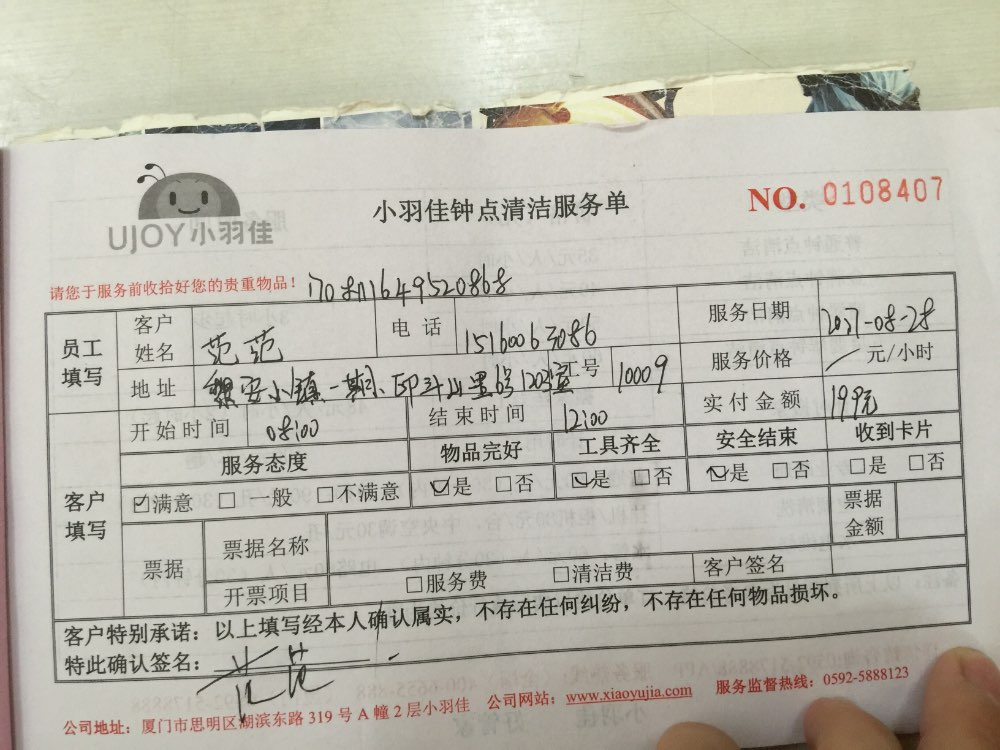 UJOY小羽佳
小羽佳钟点清洁服务单
NO. 0108407
请您于服务前收拾好您的贵重物品！
员工填写
客户姓名 范范 电话 15160063086 服务日期
地址 一期 120室 工号 10009 服务价格 元/小时
开始时间 08:00 结束时间 12:00 实付金额 199元
客户填写
服务态度 物品完好 工具齐全 安全结束 收到卡片
☑满意 □一般 □不满意 ☑是 □否 ☑是 □否 ☑是 □否 □是 □否
票据 票据名称 票据金额
开票项目 □服务费 □清洁费 客户签名
客户特别承诺：以上填写经本人确认属实，不存在任何纠纷，不存在任何物品损坏。
特此确认签名：范范
公司地址：厦门市思明区湖滨东路 319 号 A 幢 2 层小羽佳 公司网站：www.xiaoyujia.com 服务监督热线：0592-5888123